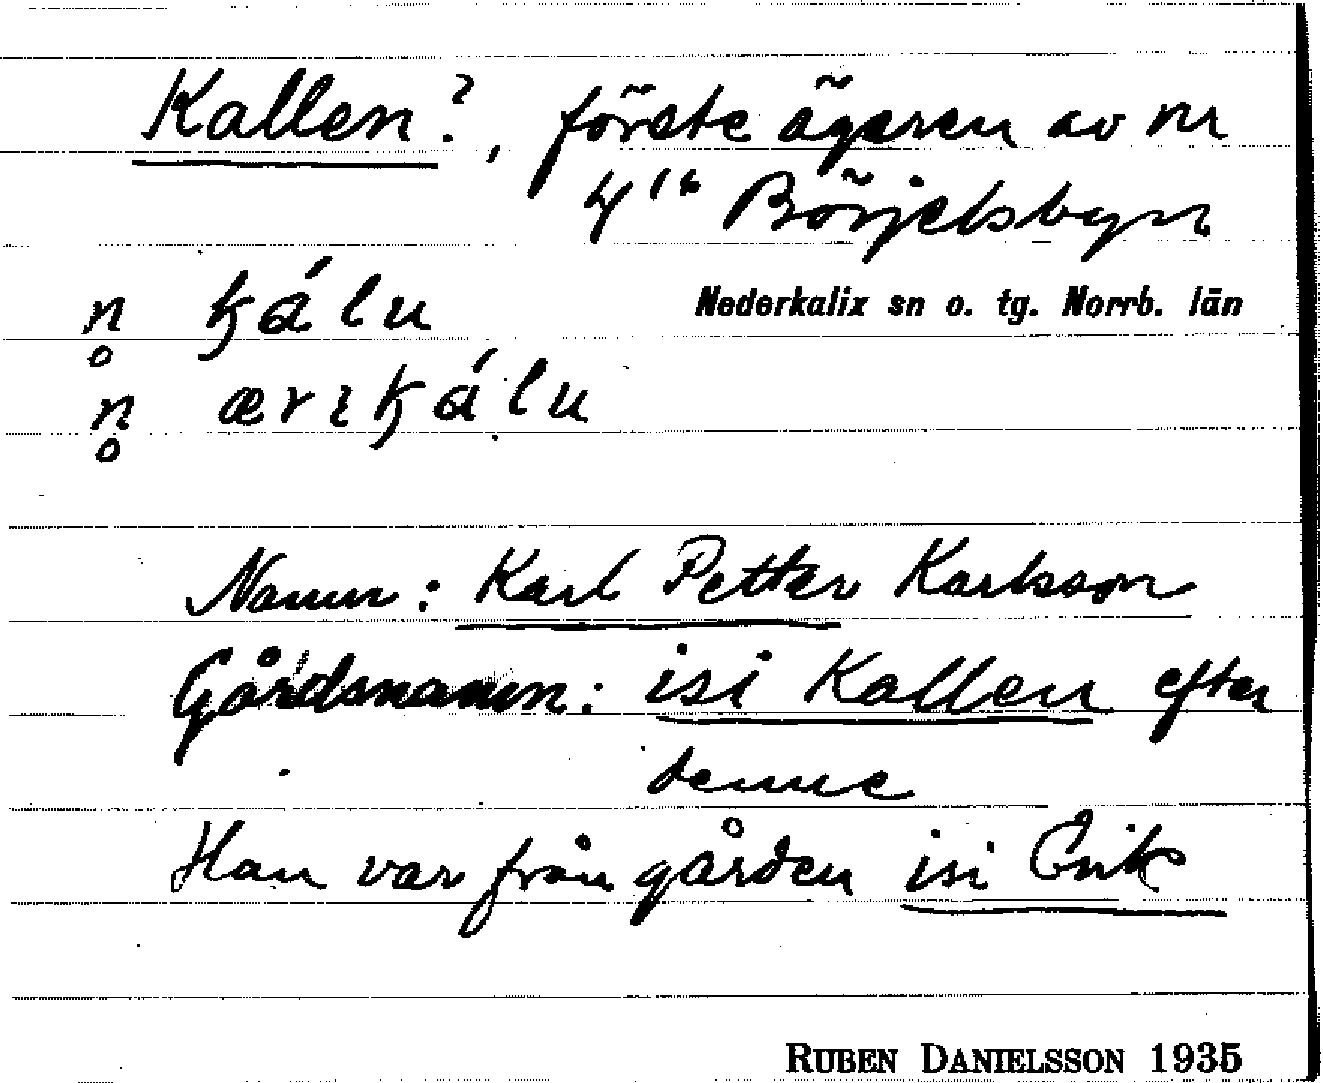 Kallen?, förste ägaren av nr
4¹⁶ Börjelsbyn
Nederkalix sn o. tg. Norrb. län
n̥ ķálu
n̥ ærıķálu
Namn: Karl Petter Karlsson
Gårdsnamn: isi Kallen efter
denne
Han var från gården isi Erik
RUBEN DANIELSSON 1935